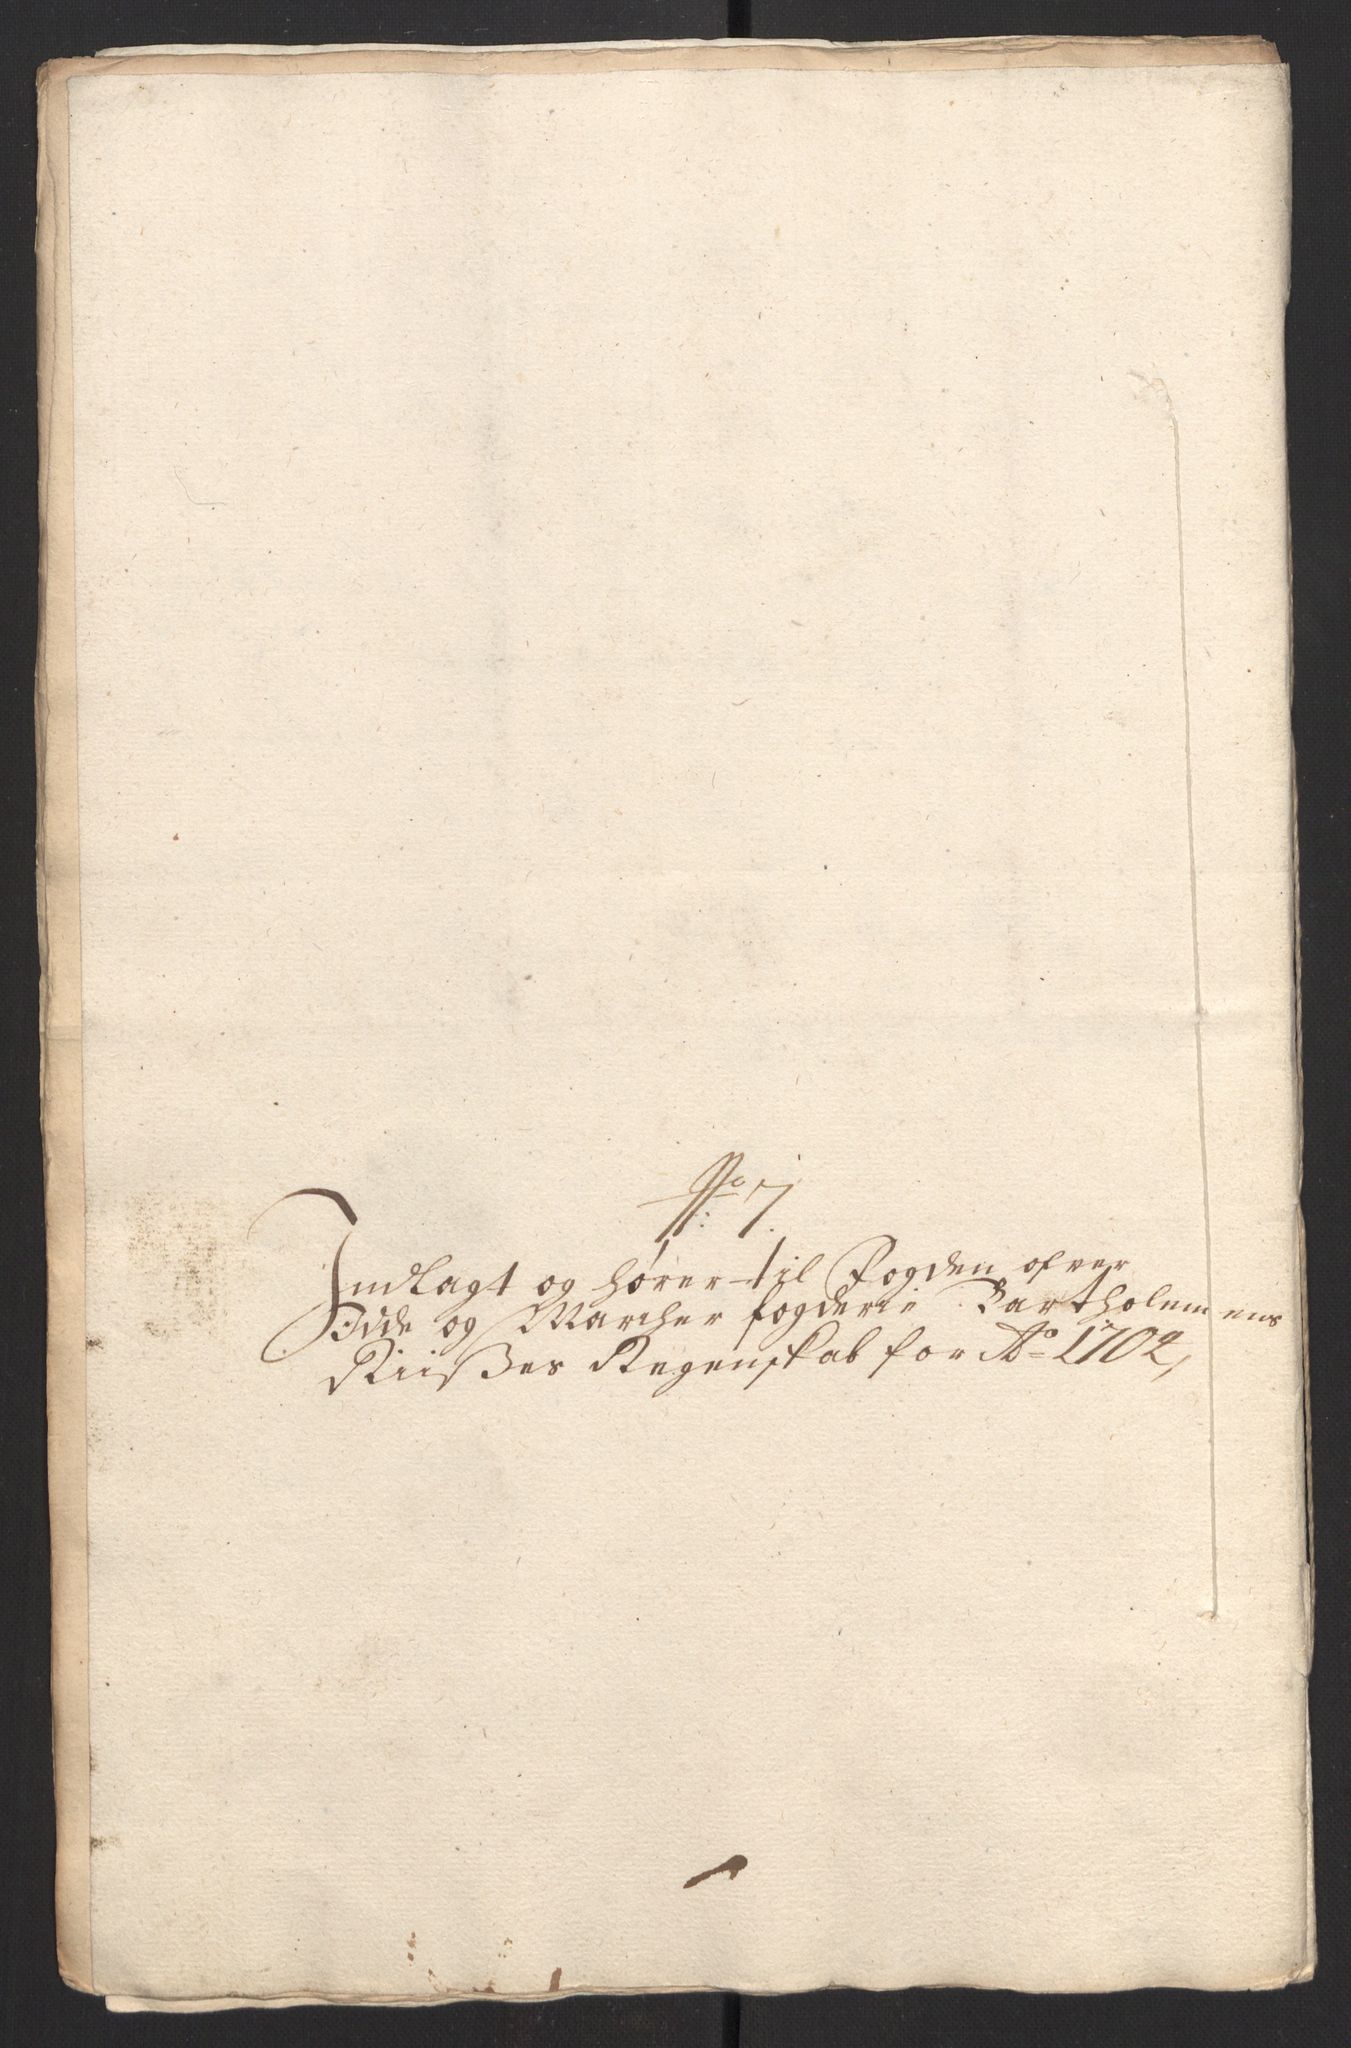 No 7.
Indlagt og hører til Fogden ofver
Idde og Marcher fogderie Bartholemeus
Riisßes Regenskab for Ao 1702,